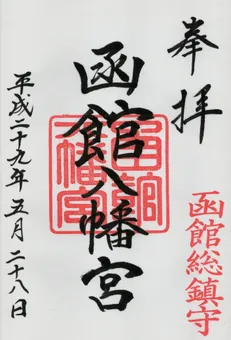 奉拝
函館総鎮守
函館八幡宮
平成二十九年五月二十八日